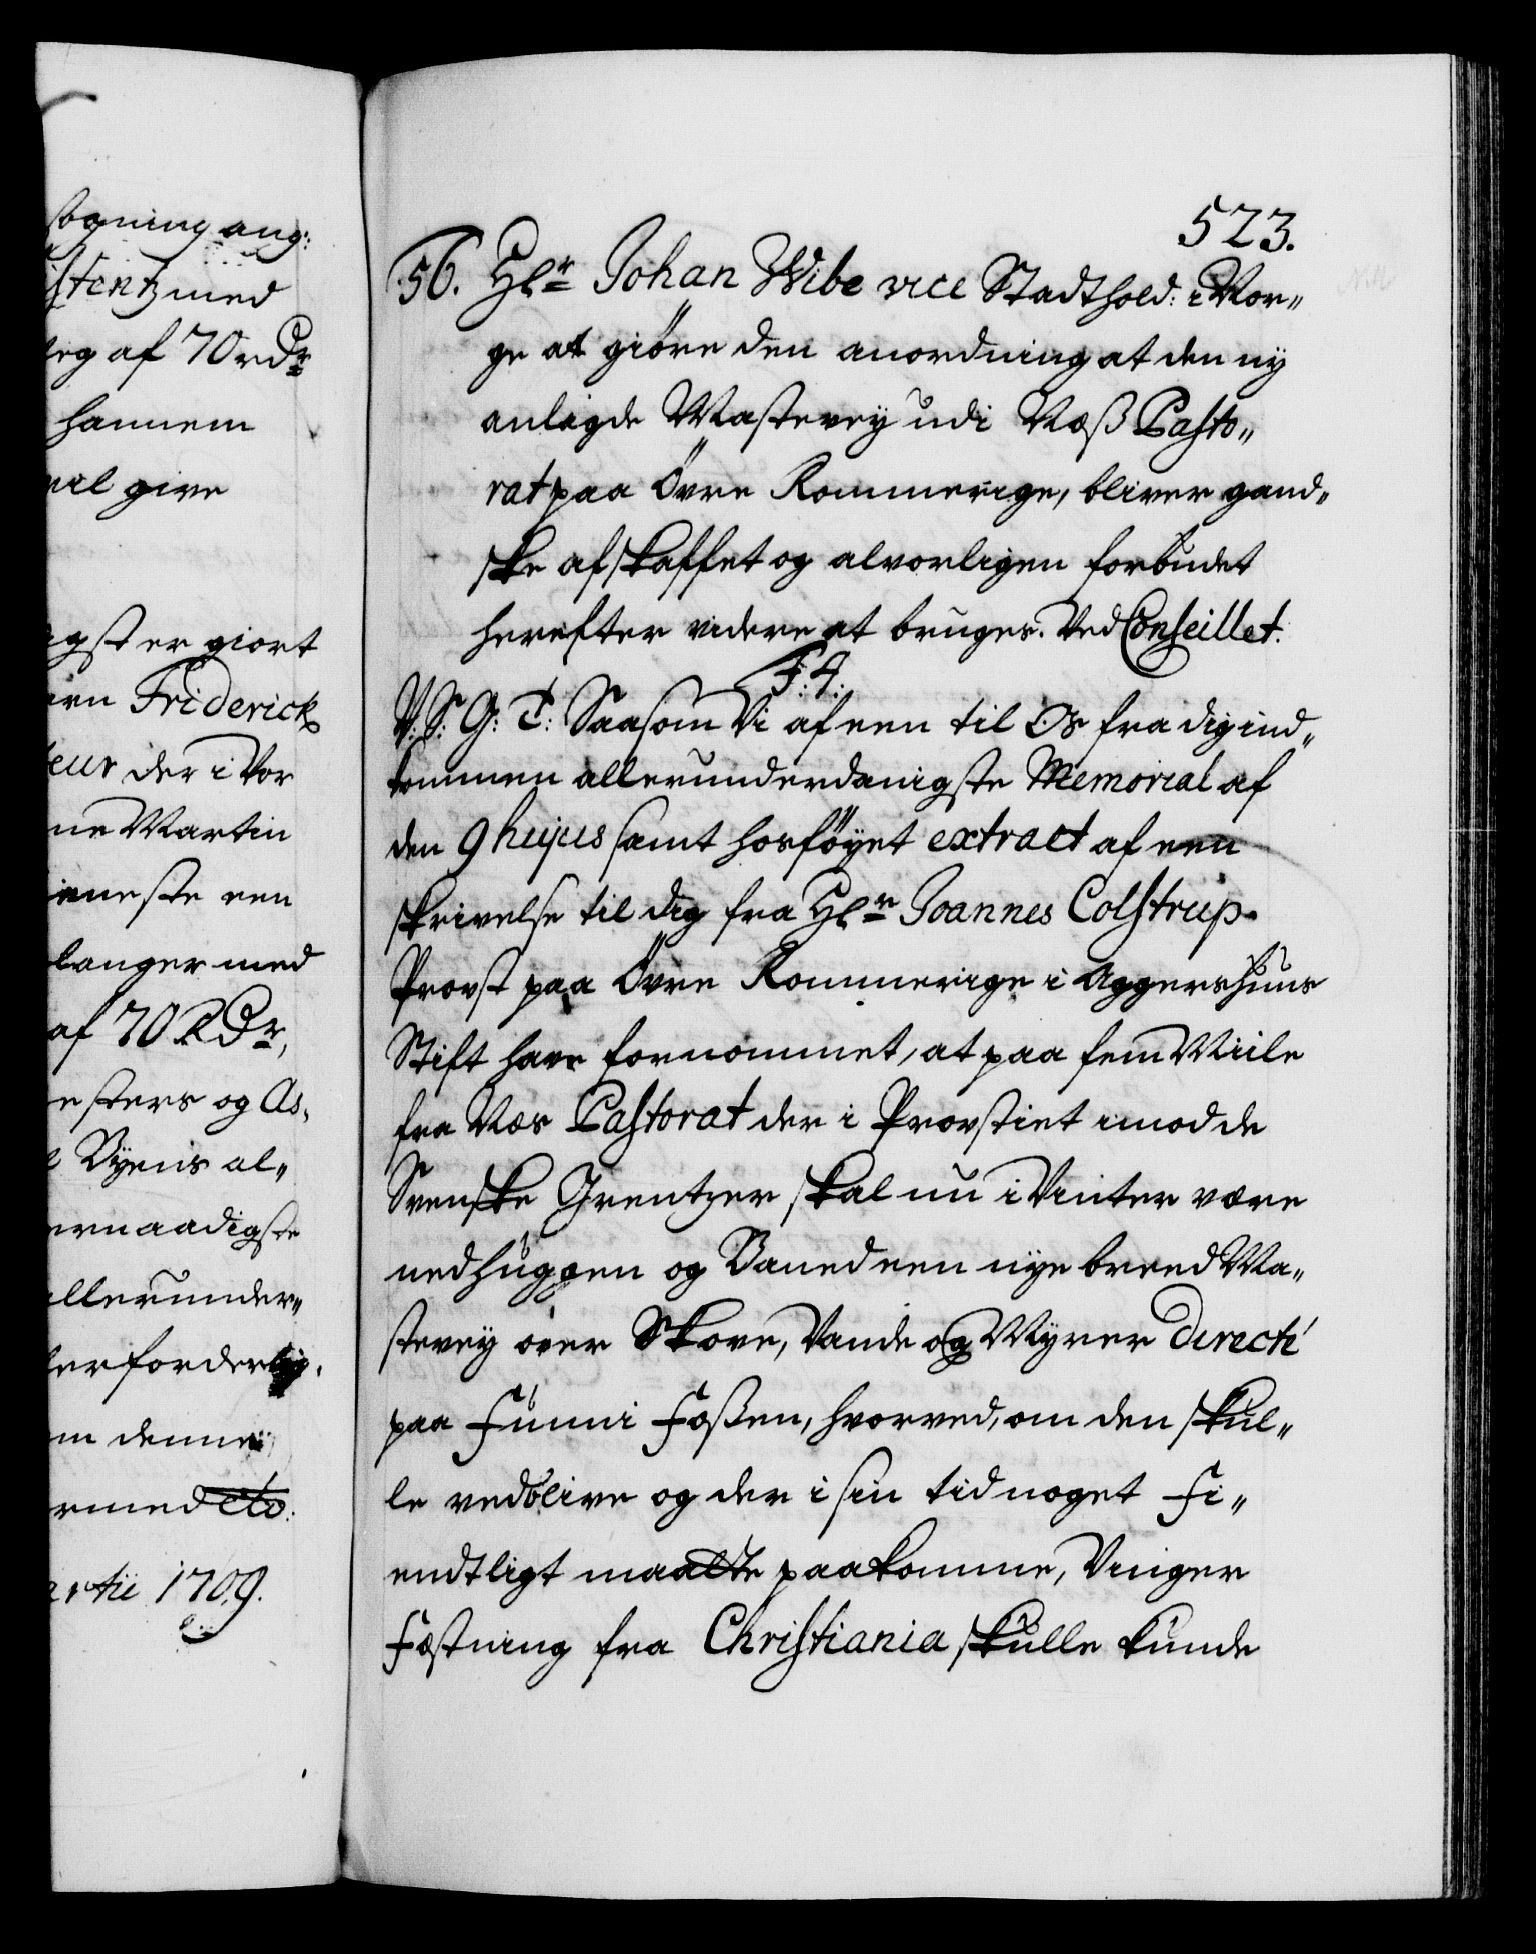 søgning ang:
istentz med
leg af 70 rdr
hannem
vil give
igst er giort
Friderick
der i Vor
ne Martin
ieneste een
langer med
af 70 RDr,
esters og As,
Byens al„
ernaadigste
allerunder„
erforderlig.
m denne
ermed etc:
artii 1709.
523.
56. Hr. Johan Wibe vice Stadthold: i Nor„
ge at giöre den anordning at den ny
anlagde Mastevey udi Næß Pasto„
rat paa Övre Rommerige, bliver gand„
ske afskaffet og alvorligen forbudet
herefter videre at bruges. Ved Conseillet.
F: 4:
V: S: G: T: Saasom Vi af een til Os fra dig ind„
kommen allerunderdanigste Memorial af
den 9 hujus samt hosföyet extract af een
skrivelse til dig fra Hr. Joannes Colstrup
Provst paa Övre Rommerige i Aggershuus
Stift have fornommet, at paa fem Miile
fra Næs Pastorat der i Provstiet imod de
Svenske Grentzer skal nu i Vinter være
nedhuggen og Baned een nye breed Ma„
stevey over Skove, Vande og Myrer directè
paa Funni Foßen, hvorved, om den skul„
le vedblive og der i sin tid noget Fi„
endtligt maatte paakomme, Vinger
Fæstning fra Christiania skulle kunde